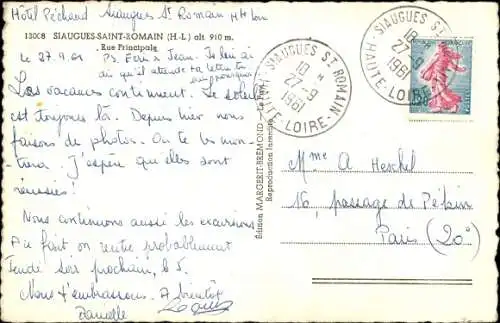 Hôtel Péchaud Siaugues St Romain Hte Loire
13008 SIAUGUES-SAINT-ROMAIN (H.-L.) alt. 910 m.
Rue Principale
Le 27.9.61
PS. Ecris à Jean. Je lui ai
dit qu'il attende ta lettre
Les vacances continuent. Le soleil
est toujours là. Depuis hier nous
faisons de photos. On te les mon-
trera. J'espère qu'elles sont
réussies!
Nous continuons aussi les excursions
Au fait on rentre probablement
lundi soir prochain, le
Nous t'embrassons. A bientôt
Danielle
Edition MARGERIT-BREMOND - Le Puy
Reproduction interdite
SIAUGUES ST ROMAIN
18 H
27-9
1961
HAUTE-LOIRE
SIAUGUES ST ROMAIN
18 H
27-9
1961
HAUTE-LOIRE
Mme A Herchel
16, passage de Pékin
Paris (20°)